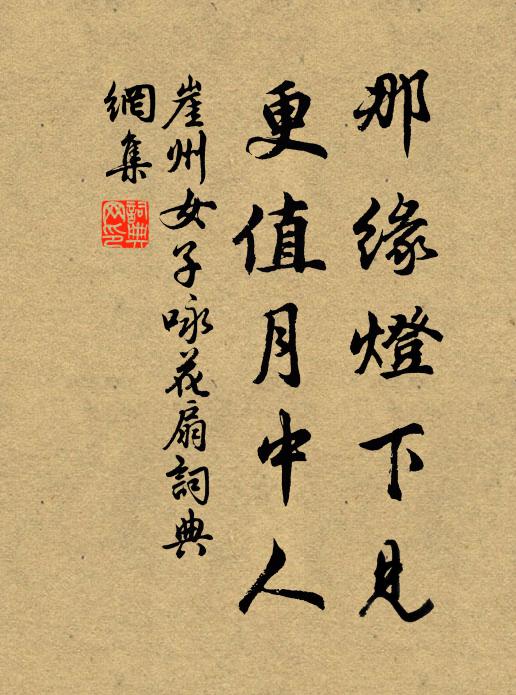 那緣燈下見
更值月中人
崖州女子咏花扇詞典
網集
詞典網印